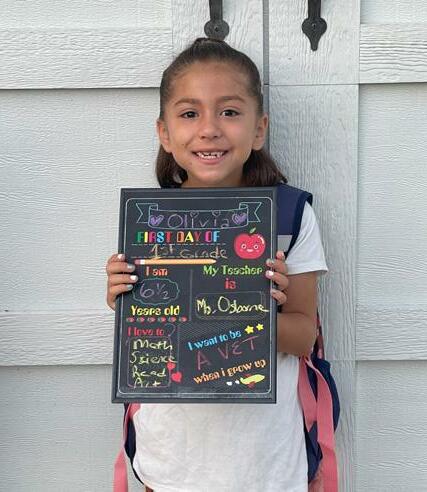 Olivia
FIRST DAY OF
1st Grade
I am
6½
Years old
My Teacher
is
Ms. Osborne
I love to
Math
Science
Read
Art
I want to be
A VET
when i grow up